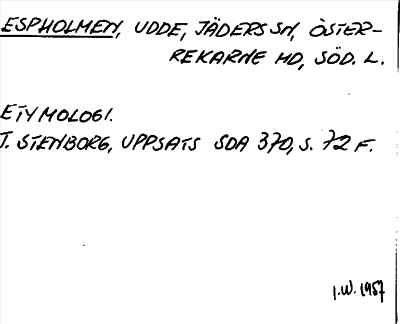 ESPHOLMEN, UDDE, JÄDERS SN, ÖSTER-
REKARNE HD, SÖD. L.
ETYMOLOGI.
T. STENBORG, UPPSATS SDA 370, S. 72 F.
I.W. 1957